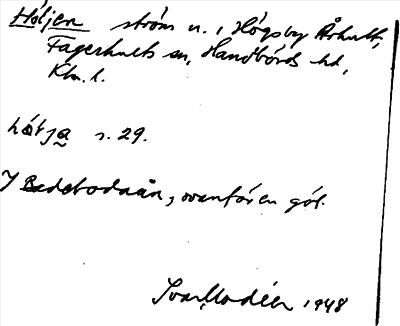 Höljen ström n. i Högsby Århult,
Fagerhults sn, Handbörds hd,
Klm. l.
hölja s. 29.
I Badebodaån, ovanför en göl.
Ivar Modéer 1948